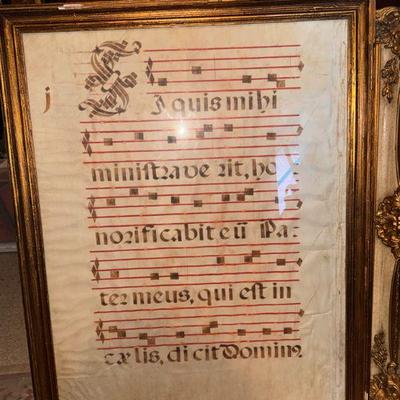 j
S
Iquis mihi
ministrave rit, ho-
norificabit eū Pa-
ter meus, qui est in
cæ lis, di cit Domin9